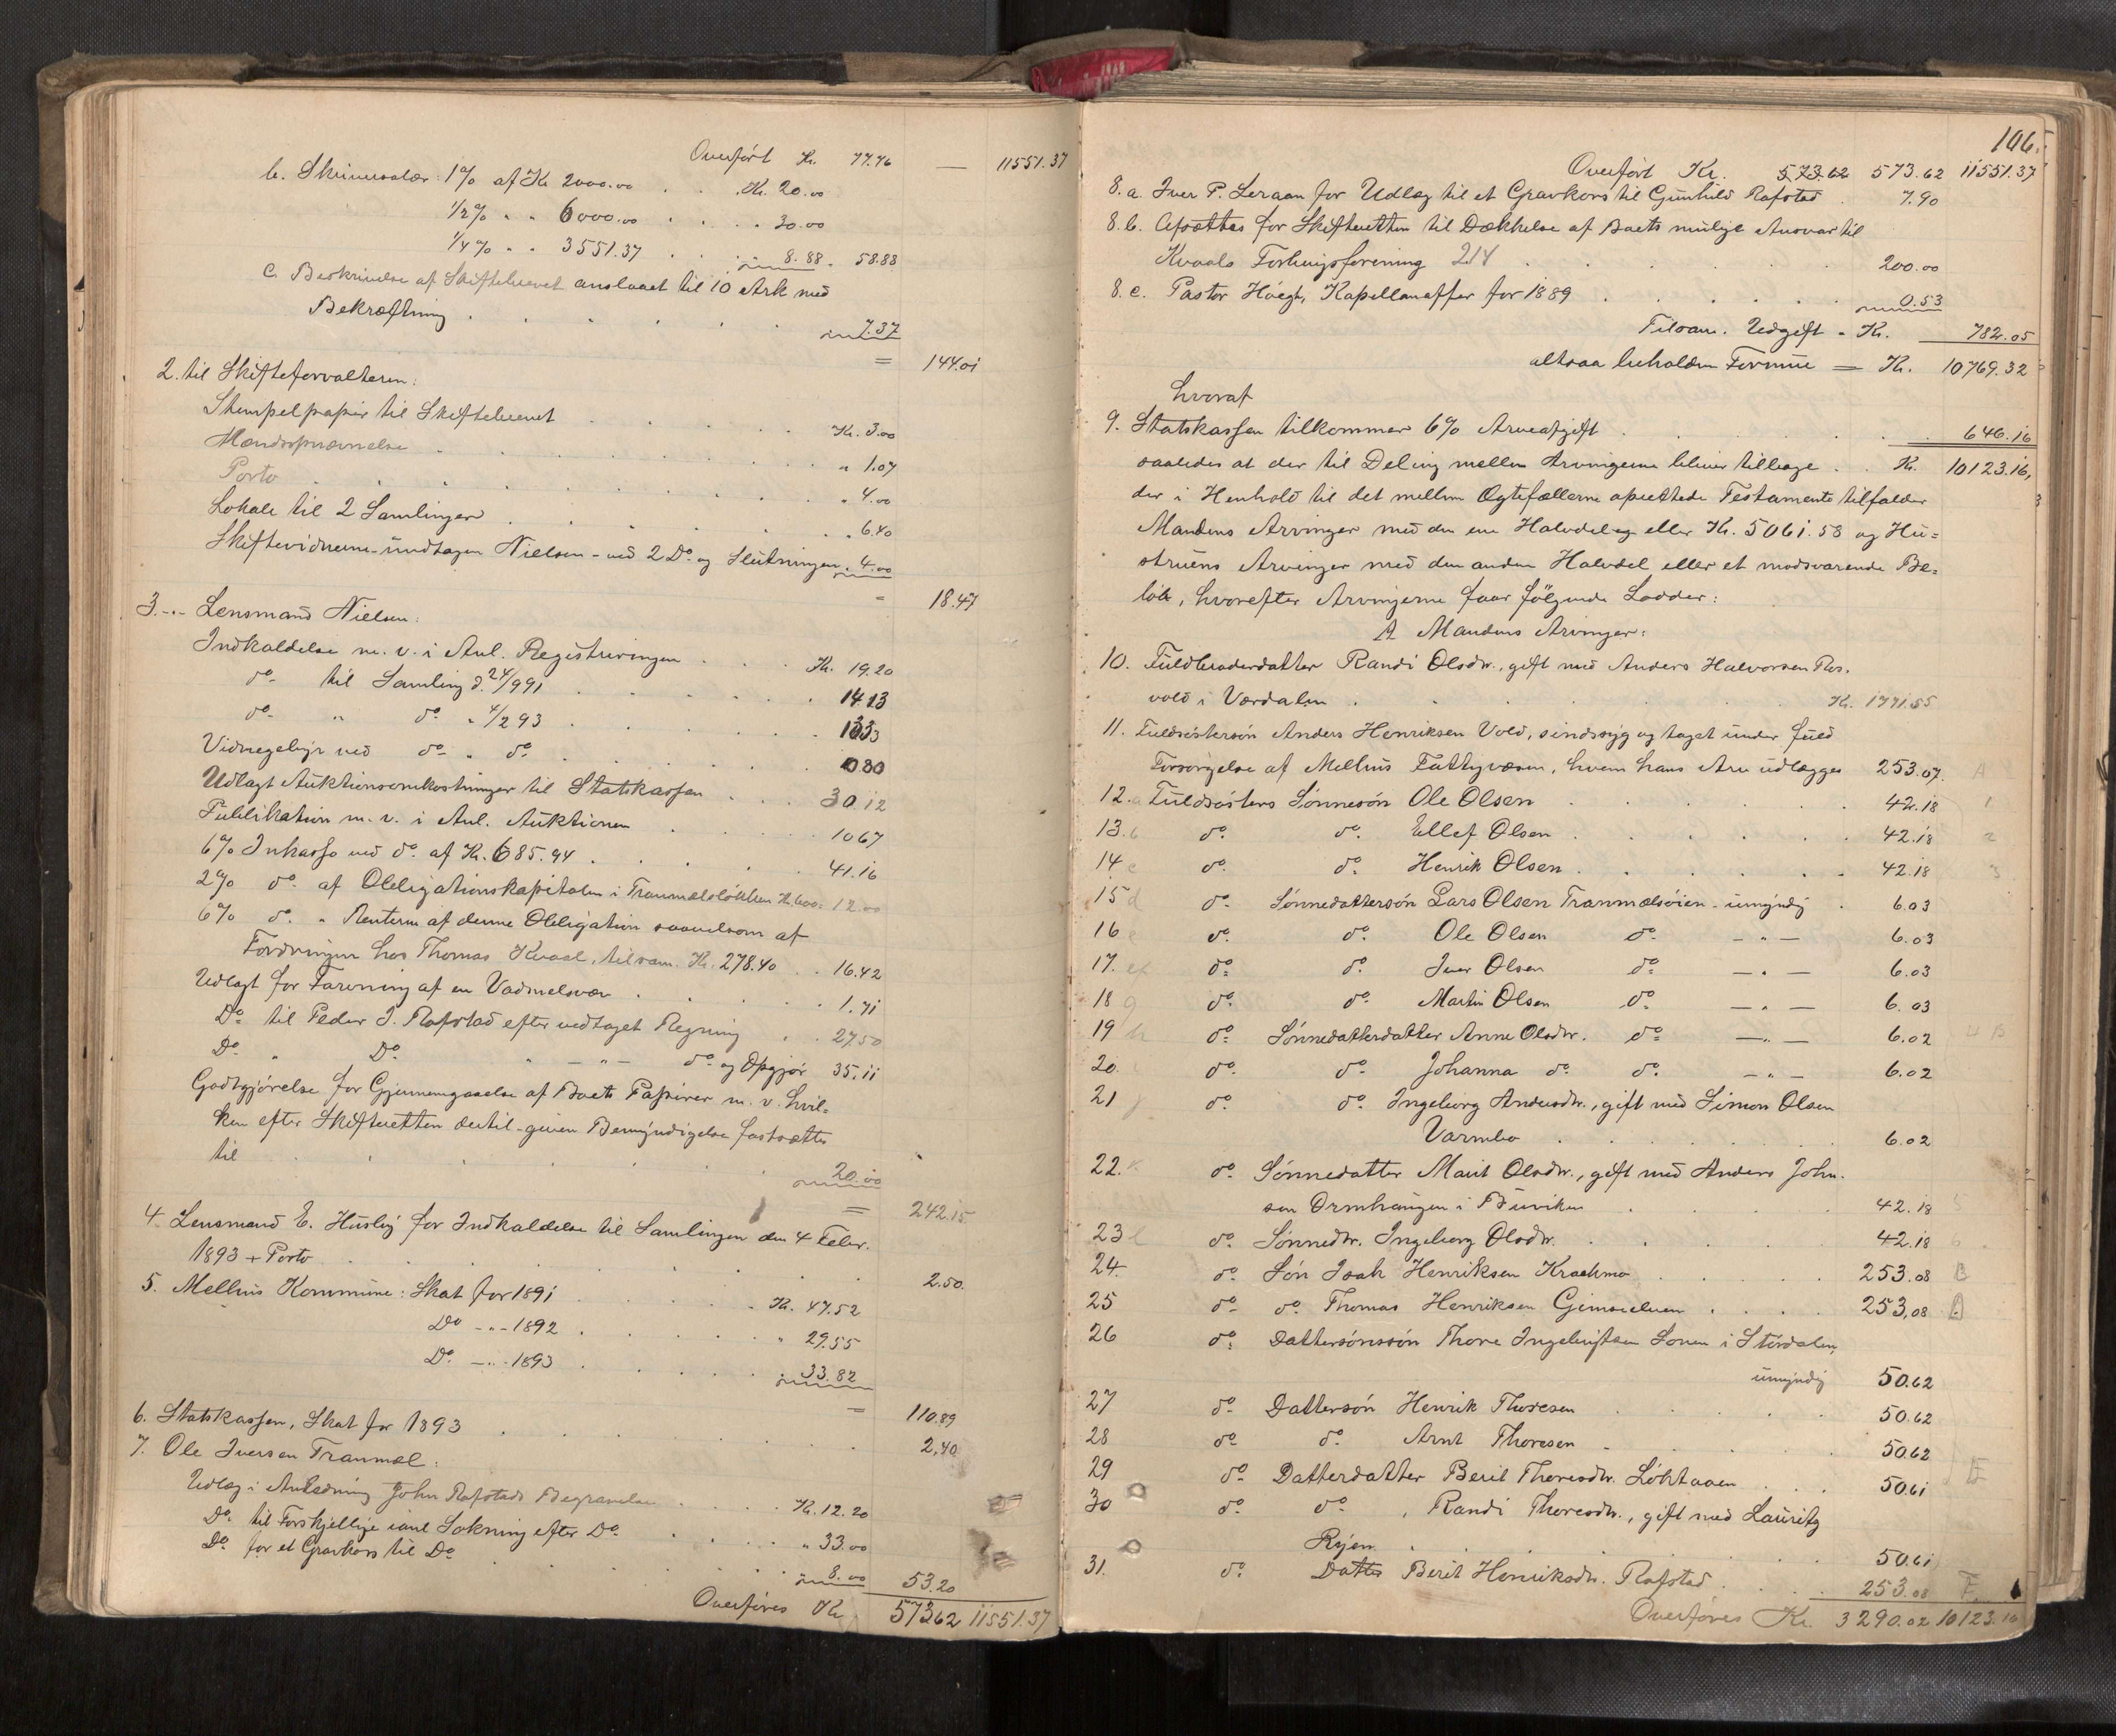 Overført Kr. 77.76 — 11551.37
b. Skriversalær: 1% af Kr 2000.00 . . . Kr. 20.00
1/2% " " 6000.00 . . . " 30.00
1/4% " " 3551.37 . . " 8.88 " 58.88
c. Beskrivelse af Skiftebrevet anslaaet til 10 Ark med
Bekræftning . . . . . . " 7.37
= 144.01
2. til Skifteforvalteren:
Stempelpapir til Skiftebrevet . . . . . Kr. 3.00
Mændsopnævnelse . . . . . . " 1.07
Porto . . . . . . . . " 4.00
Lokale til 2 Samlinger . . . . . . " 6.40
Skiftevidnerne - undtagen Nielsen - ved 2 Do. og Slutningen " 4.00
= 18.47
3. -"- Lensmand Nielsen:
Indkaldelse m. v. i Anl. Registreringen . . . Kr. 19.20
do. til Samling d. 24/9 91 . . . . . 14 13
do. " do. " 4/2 93 . . . . . 1333
Vidnegebyr ved do. " do. . . . . 0 80
Udlagt Auktionsomkostninger til Statskassen . . . 30.12
Publikation m. v. i Anl. Auktionen . . . . 10 67
6% Inkasso ved do. af Kr. 685.94 . . . . 41.16
2% do. af Obligationskapitalen i Tranmælsløkken Kr. 600: 12.00
6% do. " Renterne af denne Obligation saavelsom af
Fordringen hos Thomas Kvaal, tilsam. Kr. 278.40 . . 16.42
Udlagt for Farvning af en Vadmelsvær . . . . 1.71
Do. til Peder J. Rafstad efter vedtaget Regning . . 27.50
Do. " Do. " — " — do. og Opgjør 35.11
Godtgjørelse for Gjennemgaaelse af Boets Papirer m. v. hvil-
ken efter Skifteretten dertil given Bemyndigelse fastsættes
til . . . . . . . 20.00
= 242.15.
4. Lensmand E. Huslig for Indkaldelse til Samlingen den 4 Febr.
1893 + Porto . . . . . . . 2.50.
5. Melhus Kommune: Skat for 1891 . . . . Kr. 47.52
Do -"- 1892 . . . . . " 29.55
Do. -"- 1893 . . . . . " 33.82
= 110.89
6. Statskassen, Skat for 1893 . . . . . . 2.40
7. Ole Iversen Tranmæl:
Udlæg i Anledning John Rafstads Begravelse . . . . Kr. 12.20
Do. til Forskjellige samt Søkning efter Do. . . . . " 33.00
Do. for et Gravkors til Do. . . . . . " 8.00 53.20
Overføres Kr. 573 62 11551.37
106.
Overført Kr. 573.62 573.62 11551.37
8. a. Iver P. Leraan for Udlæg til et Gravkors til Gunhild Rafstad . 7.90
8. b. Afsættes for Skifteretten til Dækkelse af Boets mulige Ansvar til
Kvaals Forbrugsforening 214 . . . . . . 200.00
8. c. Pastor Høegh, Kapellanoffer for 1889 . . . . . 0.53
Tilsam. Udgift - Kr. 782.05
altsaa beholden Formue — Kr. 10769.32
hvoraf
9. Statskassen tilkommer 6% Arveafgift . . . . . 646.16
saaledes at der til Deling mellem Arvingerne bliver tilbage . . Kr. 10123.16,
der i Henhold til det mellem Ægtefællerne oprettede Testamente tilfalder
Mandens Arvinger med den ene Halvdel eller Kr. 5061.58 og Hu-
struens Arvinger med den anden Halvdel eller et modsvarende Be-
løb, hvorefter Arvingerne faar følgende Lodder:
A Mandens Arvinger:
10. Fuldbroderdatter Randi Olsdtr., gift med Anders Halvorsen Ros-
vold i Værdalen . . . . . . Kr. 1771.55
11. Fuldsøstersøn Anders Henriksen Vold, sindssyg og taget under fuld
Forsørgelse af Melhus Fattigvæsen, hvem hans Arv udlægges 253.07. A
12. a Fuldsøsters Sønnesøn Ole Olsen . . . . . 42.18 1
13. b do. do. Ellef Olsen . . . . . 42.18 2
14 c do. do. Henrik Olsen . . . . . 42.18 3
15 d do. Sønnedattersøn Lars Olsen Tranmælsøien - umyndig . 6.03
16 e do. do. Ole Olsen do. — " — 6.03
17. f do. do. Iver Olsen do. — " — 6.03
18 g do. do. Martin Olsen do. — " — 6.03
19 h do. Sønnedatterdatter Anne Olsdtr. do. — " — 6.02 4 B
20. i do. do. Johanna do. do. — " — 6.02
21 j do. do. Ingeborg Andersdtr., gift med Simon Olsen
Varmbo . . . . . . 6.02
22. k do. Sønnedatter Marit Olsdtr., gift med Anders John-
sen Ormhaugen i Buviken . . . . 42.18 5
23 l do. Sønnedtr. Ingeborg Olsdtr. . . . . 42.18 6
24. do. Søn Isak Henriksen Kraakmo . . . . 253.08 C
25 do. do. Thomas Henriksen Gimseelven . . . . 253.08 D
26 do. Dattersønssøn Thore Ingebrigtsen Sonen i Stjørdalen,
umyndig 50.62
27 do. Dattersøn Henrik Thoresen . . . . . 50.62
28 do. do. Arnt Thoresen . . . . . 50.62
29 do. Datterdatter Beril Thoresdtr. Løkkaaen . . . 50.61 E
30 do. do. , Randi Thoresdtr., gift med Lauritz
Ryen . . . . . . . 50.61
31. do. Datter Berit Henriksdtr. Rafstad . . . . 253.08 F.
Overføres Kr. 3290.02 10123.16